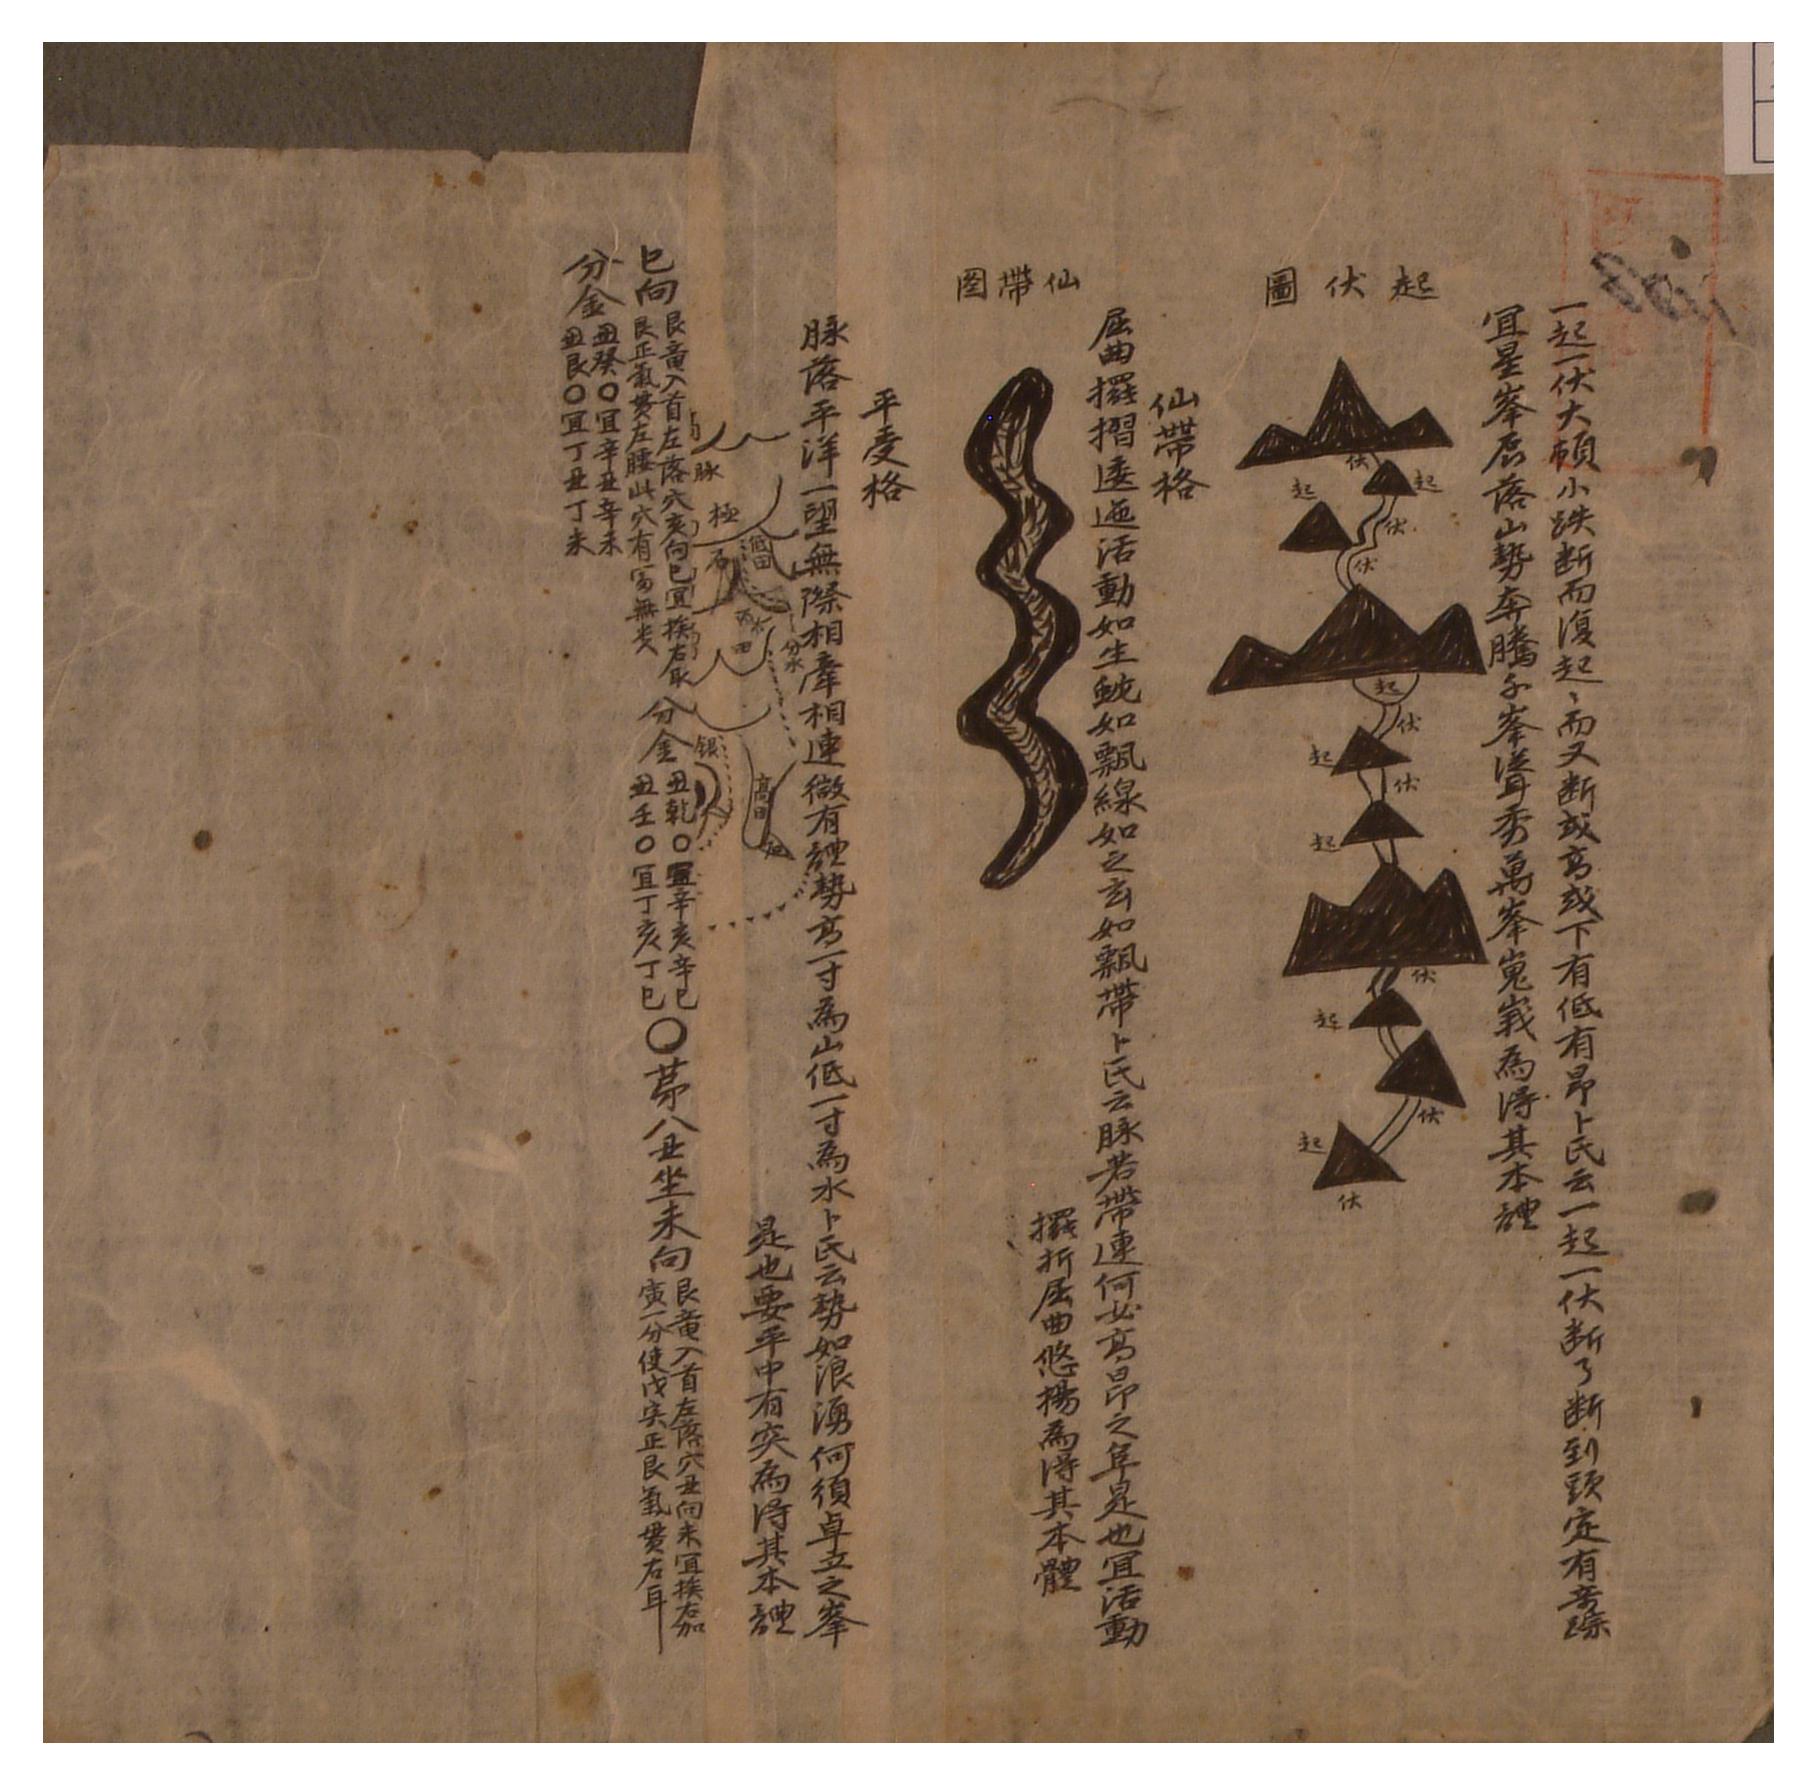 一起一伏大頓小跌断而復起〻而又断或高或下有低有昂卜氏云一起一伏断了断到頭定有竒踪
宜星峯磊落山勢奔騰千峯聳秀萬峯嵬峩為得其本軆
起伏圖
伏
起
起
伏
伏
起
伏
起
伏
起
伏
起
伏
起
伏
仙帶格
屈曲擺摺逶迤活動如生蛇如飄線如之玄如飄帶卜氏云脉若帶連何必高昂之阜是也宜活動
擺折屈曲悠揚為得其本體
仙帶图
平受格
脉落平洋一望無際相牽相連微有軆勢高一寸為山低一寸為水卜氏云勢如浪湧何須卓立之峯
是也要平中有突為得其本軆
脉
極
石
低田
分水
田
高田
银
巳向
艮竜入首左落穴亥向巳宜挨右取
艮正氣貫左腰此穴有富無贵
分金
丑乾〇宜辛亥辛巳
丑壬〇宜丁亥丁巳
〇苐八丑坐未向
艮竜入首左落穴丑向未宜挨右加
寅一分使戊寅正艮氣貫右耳
分金
丑癸〇宜辛丑辛未
丑艮〇宜丁丑丁未